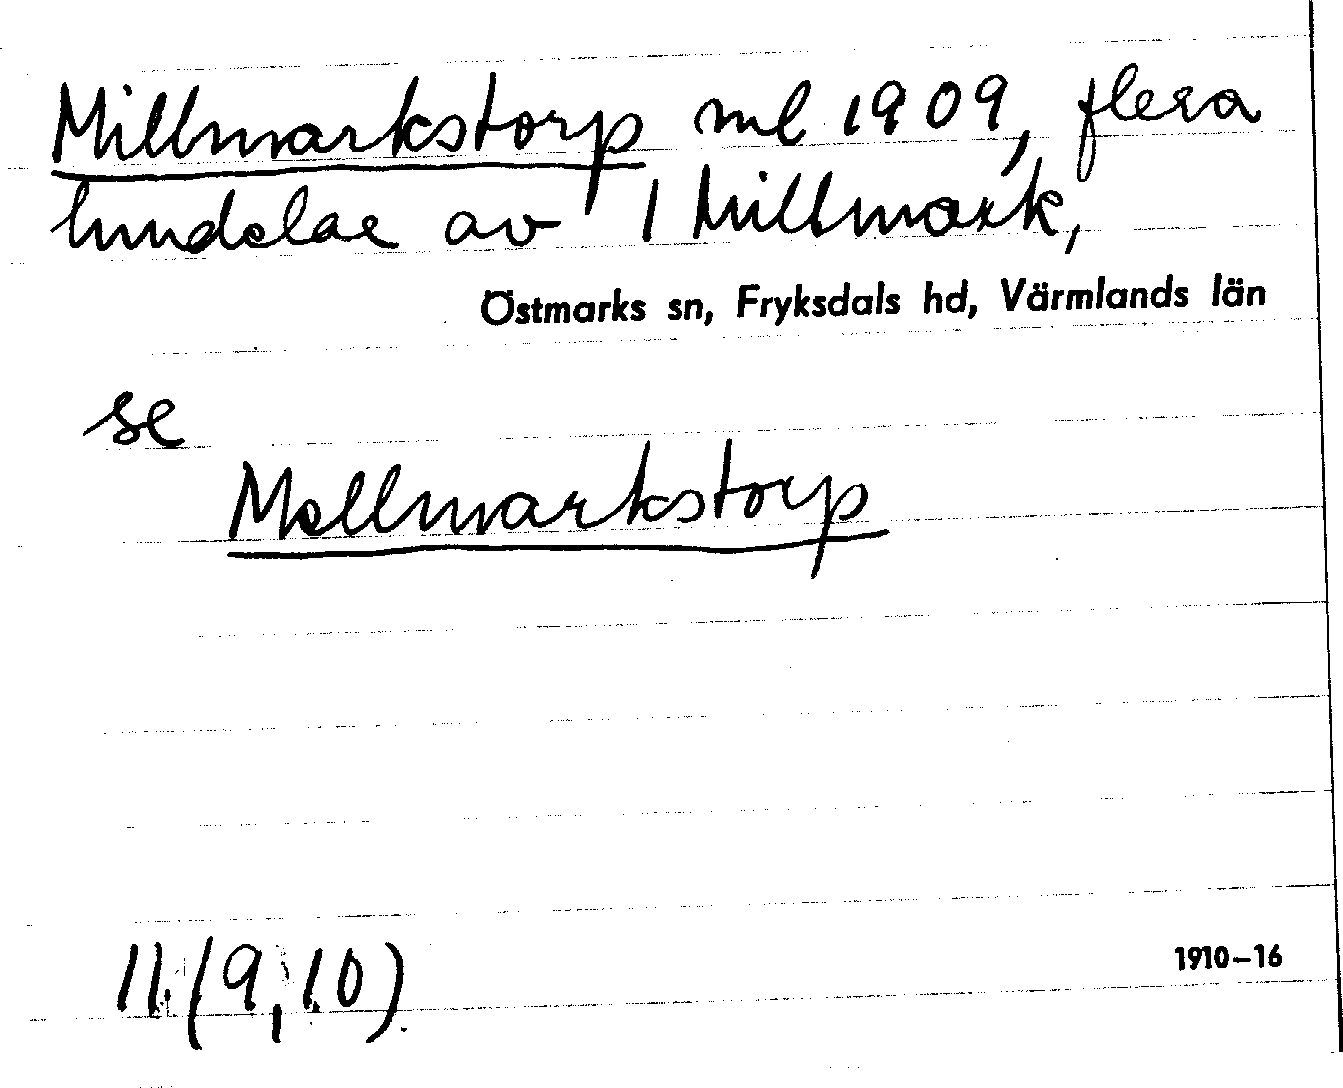 Millmarkstorp ml 1909, flera
hmdelar av 1 Millmark,
Östmarks sn, Fryksdals hd, Värmlands län
se
Mellmarkstorp
11 (9, 10)
1910–16